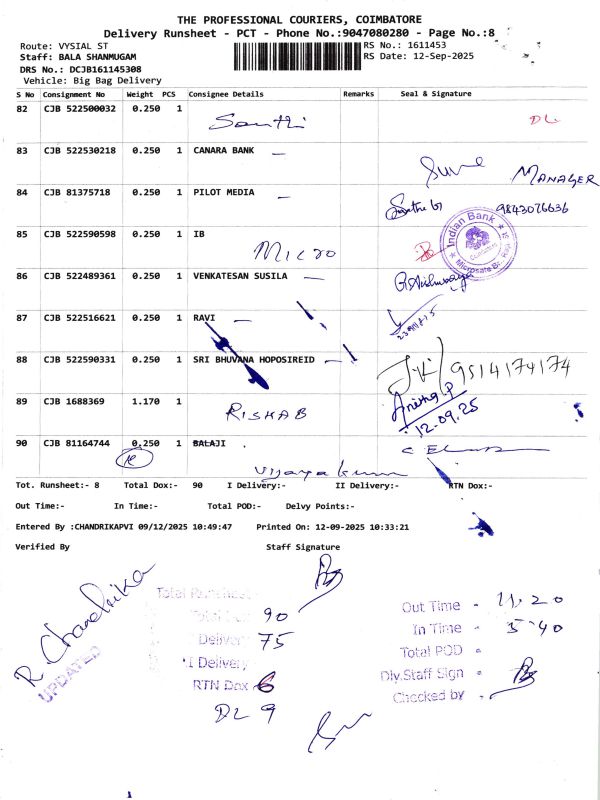 THE PROFESSIONAL COURIERS, COIMBATORE
Delivery Runsheet - PCT - Phone No.:9047080280 - Page No.:8
Route: VYSIAL ST
RS No.: 1611453
Staff: BALA SHANMUGAM
RS Date: 12-Sep-2025
DRS No.: DCJB161145308
Vehicle: Big Bag Delivery
S No Consignment No Weight PCS Consignee Details Remarks Seal & Signature
82 CJB 522500032 0.250 1
Santhi DL
83 CJB 522530218 0.250 1 CANARA BANK
MANAGER
84 CJB 81375718 0.250 1 PILOT MEDIA
9843076636
85 CJB 522590598 0.250 1 IB
Micro
Indian Bank
86 CJB 522489361 0.250 1 VENKATESAN SUSILA
87 CJB 522516621 0.250 1 RAVI
88 CJB 522590331 0.250 1 SRI BHUVANA HOPOSIREID
9514174174
89 CJB 1688369 1.170 1
RISHAB
12.09.25
90 CJB 81164744 0.250 1 BALAJI
Vijayakumar
Tot. Runsheet:- 8 Total Dox:- 90 I Delivery:- II Delivery:- RTN Dox:-
Out Time:- In Time:- Total POD:- Delvy Points:-
Entered By :CHANDRIKAPVI 09/12/2025 10:49:47 Printed On: 12-09-2025 10:33:21
Verified By Staff Signature
R. Chandrika
UPDATED
Total Runsheet
90
Delivery 75
I Delivery
RTN Dox 6
DL 9
Out Time - 11.20
In Time - 5.40
Total POD -
Dly.Staff Sign -
Checked by -